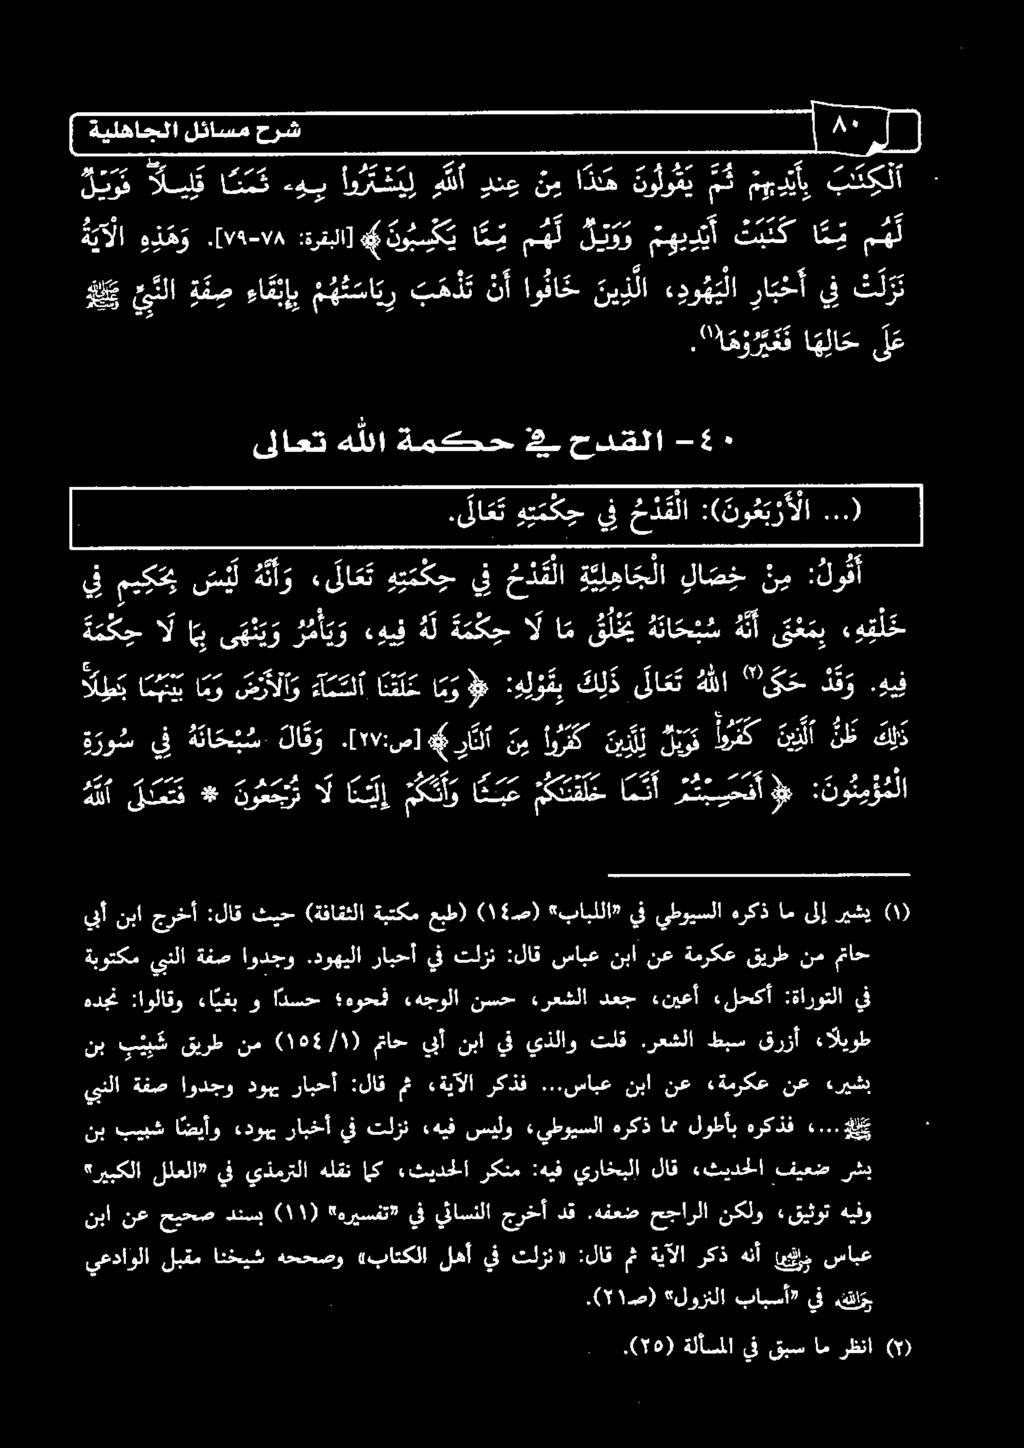 ٨٠
شرح مسائل الجاهلية
ٱلْكِتَٰبَ بِأَيْدِيهِمْ ثُمَّ يَقُولُونَ هَٰذَا مِنْ عِندِ ٱللَّهِ لِيَشْتَرُواْ بِهِۦ ثَمَنًا قَلِيلًا ۖ فَوَيْلٌ
لَّهُم مِّمَّا كَتَبَتْ أَيْدِيهِمْ وَوَيْلٌ لَّهُم مِّمَّا يَكْسِبُونَ﴾ [البقرة: ٧٨-٧٩]. وَهَذِهِ الْآيَةُ
نَزَلَتْ فِي أَحْبَارِ الْيَهُودِ، الَّذِينَ خَافُوا أَنْ تَذْهَبَ رِيَاسَتُهُمْ بِإِبْقَاءِ صِفَةِ النَّبِيِّ ﷺ
عَلَى حَالِهَا فَغَيَّرُوْهَا(١).
٤٠- القدح في حكمة الله تعالى
(... الْأَرْبَعُونَ): الْقَدْحُ فِي حِكْمَتِهِ تَعَالَى.
أَقُولُ: مِنْ خِصَالِ الْجَاهِلِيَّةِ الْقَدْحُ فِي حِكْمَتِهِ تَعَالَى، وَأَنَّهُ لَيْسَ بِحَكِيمٍ فِي
خَلْقِهِ، بِمَعْنَى أَنَّهُ سُبْحَانَهُ يَخْلُقُ مَا لَا حِكْمَةَ لَهُ فِيهِ، وَيَأْمُرُ وَيَنْهَى بِمَا لَا حِكْمَةَ
فِيهِ. وَقَدْ حَكَى(٢) اللهُ تَعَالَى ذَلِكَ بِقَوْلِهِ: ﴿وَمَا خَلَقْنَا ٱلسَّمَآءَ وَٱلْأَرْضَ وَمَا بَيْنَهُمَا بَٰطِلًا ۚ
ذَٰلِكَ ظَنُّ ٱلَّذِينَ كَفَرُواْ ۚ فَوَيْلٌ لِّلَّذِينَ كَفَرُواْ مِنَ ٱلنَّارِ﴾ [ص:٢٧]. وَقَالَ سُبْحَانَهُ فِي سُورَةِ
الْمُؤْمِنُونَ: ﴿أَفَحَسِبْتُمْ أَنَّمَا خَلَقْنَٰكُمْ عَبَثًا وَأَنَّكُمْ إِلَيْنَا لَا تُرْجَعُونَ * فَتَعَٰلَى ٱللَّهُ
(١) يشير إلى ما ذكره السيوطي في «اللباب» (صـ١٤) (طبع مكتبة الثقافة) حيث قال: أخرج ابن أبي
حاتم من طريق عكرمة عن ابن عباس قال: نزلت في أحبار اليهود. وجدوا صفة النبي مكتوبة
في التوراة: أكحل، أعين، جعد الشعر، حسن الوجه، فمحوه؛ حسدًا و بغيًا، وقالوا: نجده
طويلًا، أزرق سبط الشعر. قلت والذي في ابن أبي حاتم (١٥٤/١) من طريق شَبِيْبِ بن
بشير، عن عكرمة، عن ابن عباس... فذكر الآية، ثم قال: أحبار يهود وجدوا صفة النبي
ﷺ...، فذكره بأطول مما ذكره السيوطي، وليس فيه، نزلت في أخبار يهود، وأيضًا شبيب بن
بشر ضعيف الحديث، قال البخاري فيه: منكر الحديث، كما نقله الترمذي في «العلل الكبير»
وفيه توثيق، ولكن الراجح ضعفه. قد أخرج النسائي في «تفسيره» (١١) بسند صحيح عن ابن
عباس رضي الله عنهما أنه ذكر الآية ثم قال: «نزلت في أهل الكتاب» وصححه شيخنا مقبل الوادعي
رحمه الله في «أسباب النزول» (صـ٢١).
(٢) انظر ما سبق في المسألة (٢٥).